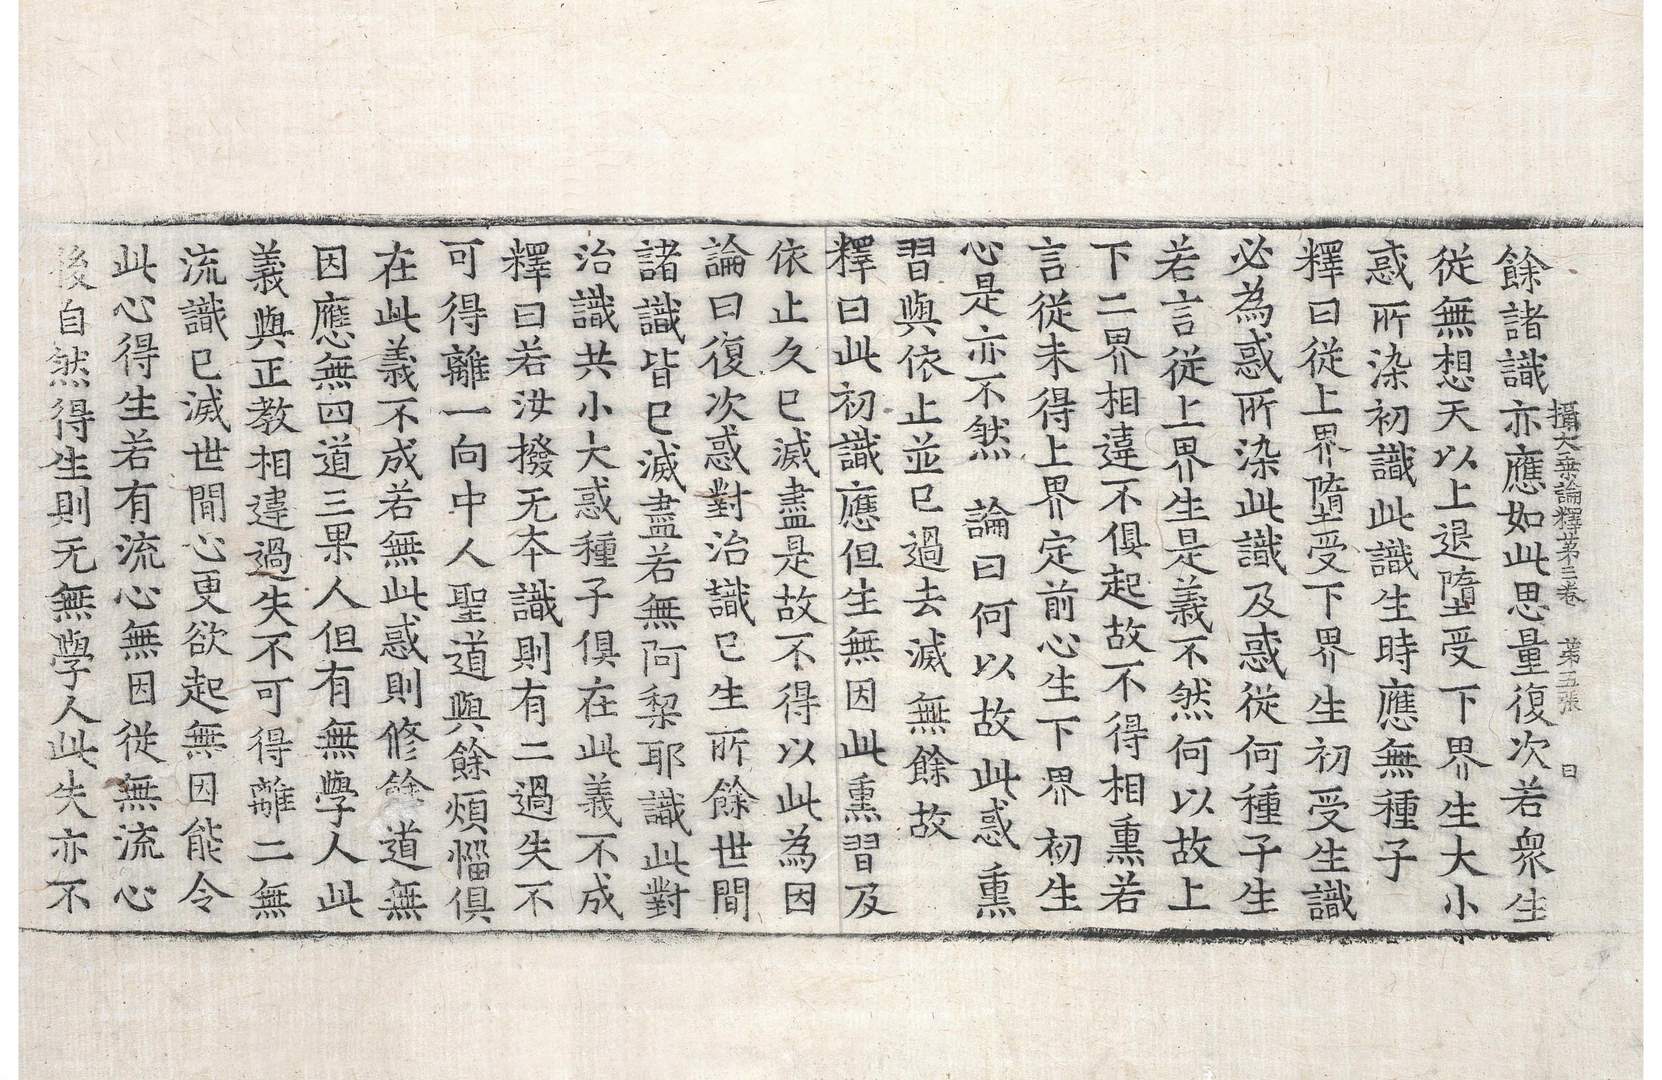 攝大乗論釋第三卷　第五張　日
餘諸識亦應如此思量復次若衆生
從無想天以上退墮受下界生大小
惑所染初識此識生時應無種子
釋曰從上界墮受下界生初受生識
必為惑所染此識及惑從何種子生
若言從上界生是義不然何以故上
下二界相違不俱起故不得相熏若
言從未得上界定前心生下界初生
心是亦不然　論曰何以故此惑熏
習與依止並已過去滅無餘故
釋曰此初識應但生無因此熏習及
依止久已滅盡是故不得以此為因
論曰復次惑對治識已生所餘世間
諸識皆已滅盡若無阿棃耶識此對
治識共小大惑種子俱在此義不成
釋曰若汝撥无本識則有二過失不
可得離一向中人聖道與餘煩惱俱
在此義不成若無此惑則修餘道無
因應無四道三果人但有無學人此
義與正教相違過失不可得離二無
流識已滅世間心更欲起無因能令
此心得生若有流心無因從無流心
後自然得生則无無學人此失亦不